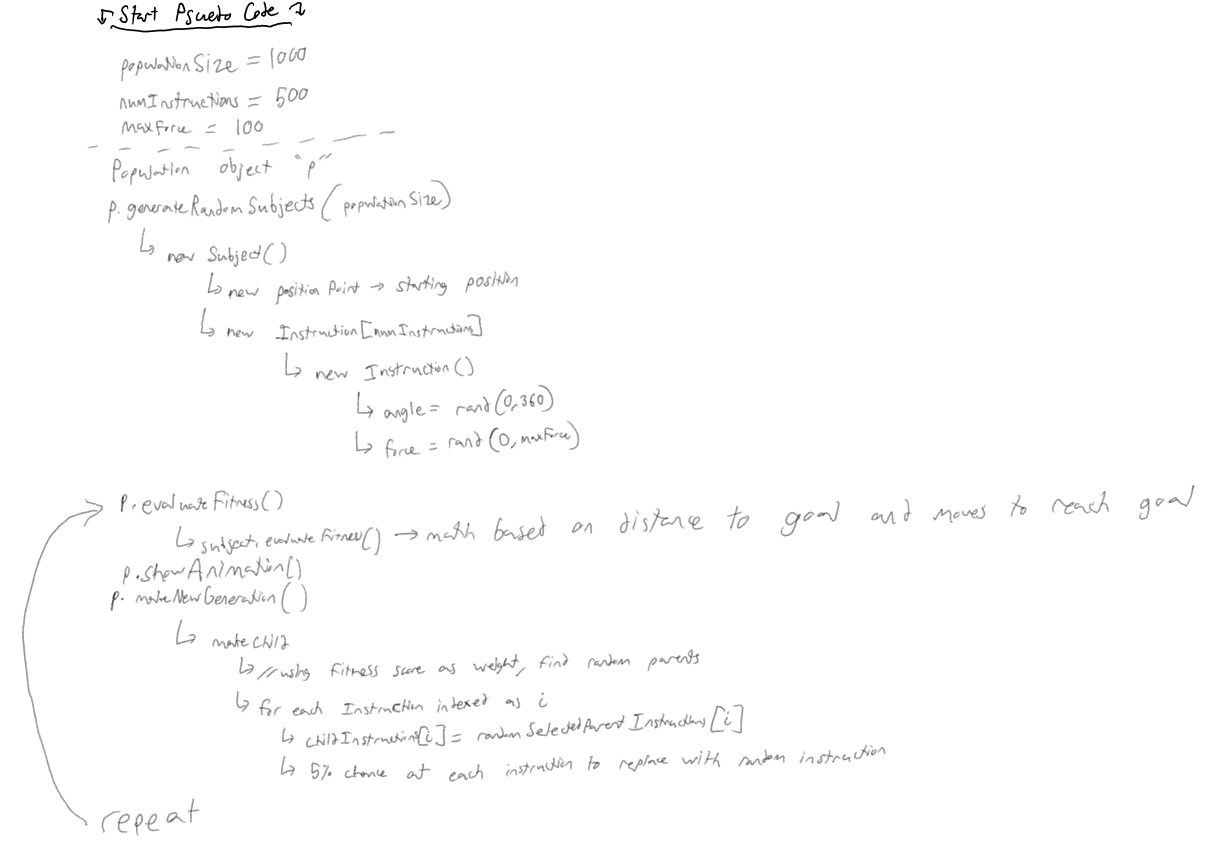 ↯ Start Psueto Code ↯
populationSize = 1000
numInstructions = 500
maxForce = 100
Population object "p"
p.generateRandomSubjects(populationSize)
↳ new Subject()
↳ new positionPoint → starting position
↳ new Instruction[numInstructions]
↳ new Instruction()
↳ angle = rand(0,360)
↳ force = rand(0, maxForce)
p.evaluateFitness()
↳ subject.evaluateFitness() → math based on distance to goal and moves to reach goal
p.showAnimation()
p.makeNewGeneration()
↳ makeChild
↳ //using fitness score as weight, find random parents
↳ for each Instruction indexed as i
↳ childInstructions[i] = randomSelectedParentInstructions[i]
↳ 5% chance at each instruction to replace with random instruction
repeat